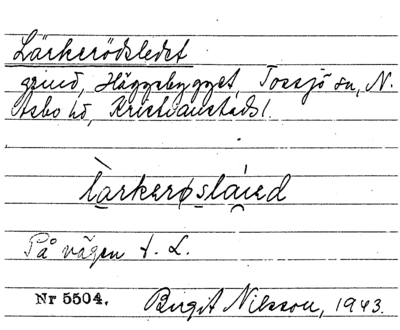 Lärkerödsledet
grind, Häggebygget, Tossjö sn, N.
Åsbo hd, Kristianstads l.
làrkerøsláied
På vägen t. L.
Nr 5504. Birgit Nilsson, 1943.